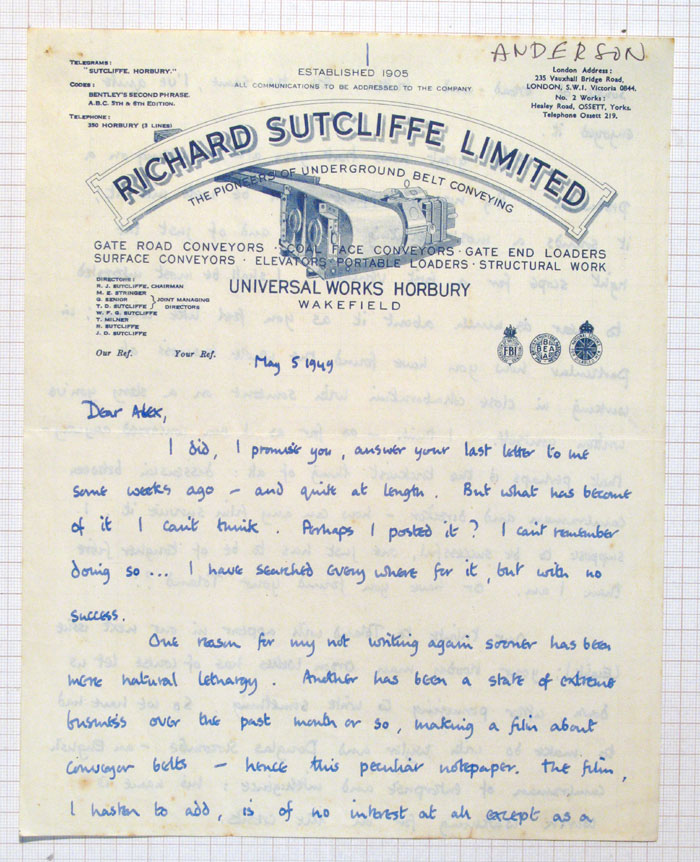 ANDERSON
TELEGRAMS:
"SUTCLIFFE, HORBURY."
CODES:
BENTLEY'S SECOND PHRASE.
A.B.C. 5TH & 6TH EDITION.
TELEPHONE:
350 HORBURY (3 LINES)
ESTABLISHED 1905
ALL COMMUNICATIONS TO BE ADDRESSED TO THE COMPANY
London Address:
235 Vauxhall Bridge Road,
LONDON, S.W.1. Victoria 0844.
No. 2 Works:
Healey Road, OSSETT, Yorks.
Telephone Ossett 219.
RICHARD SUTCLIFFE LIMITED
THE PIONEERS OF UNDERGROUND BELT CONVEYING
GATE ROAD CONVEYORS · COAL FACE CONVEYORS · GATE END LOADERS
SURFACE CONVEYORS · ELEVATORS · PORTABLE LOADERS · STRUCTURAL WORK
UNIVERSAL WORKS HORBURY
WAKEFIELD
DIRECTORS:
R. J. SUTCLIFFE, CHAIRMAN
M. E. STRINGER
G. SENIOR
T. D. SUTCLIFFE
JOINT MANAGING DIRECTORS
W. F. G. SUTCLIFFE
T. MILNER
R. SUTCLIFFE
J. D. SUTCLIFFE
FBI
Our Ref. Your Ref.
May 5 1949
Dear Alex,
I did, I promise you, answer your last letter to me
some weeks ago – and quite at length. But what has become
of it I can't think. Perhaps I posted it? I can't remember
doing so... I have searched every where for it, but with no
success.
One reason for my not writing again sooner has been
mere natural lethargy. Another has been a state of extreme
business over the past month or so, making a film about
conveyor belts – hence this peculiar notepaper. The film,
I hasten to add, is of no interest at all except as a